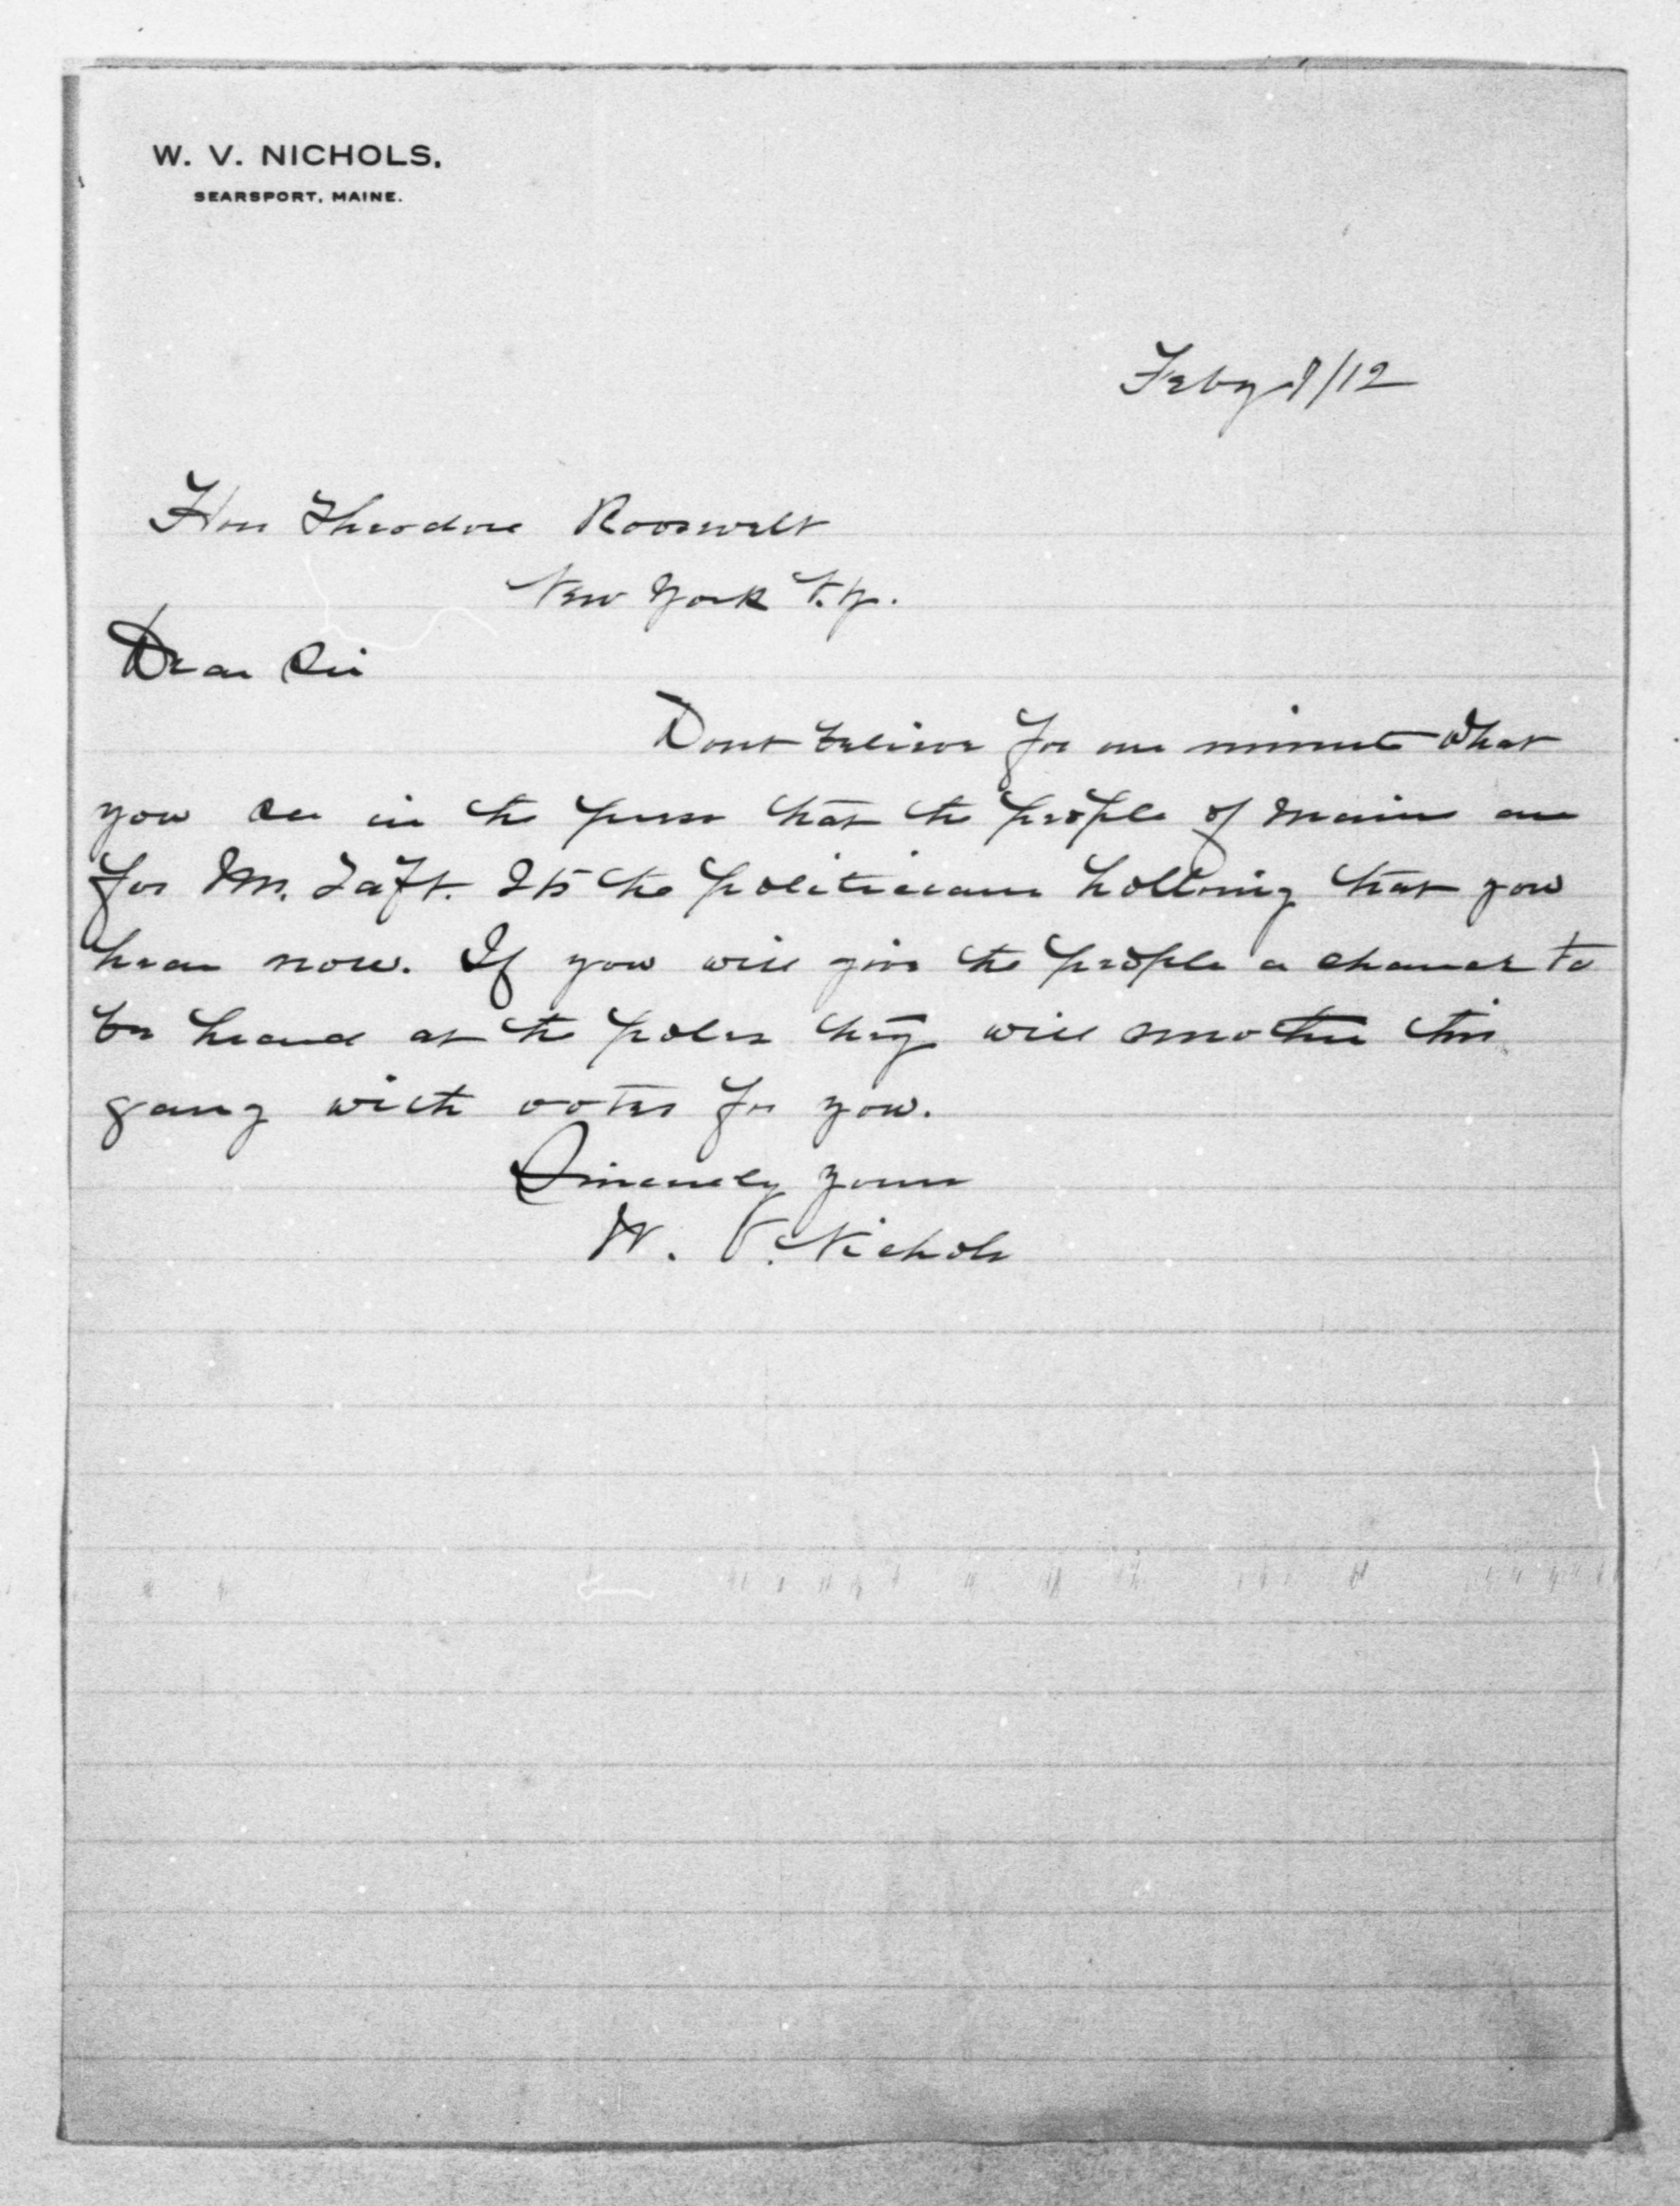 W. V. NICHOLS.
SEARSPORT, MAINE.
Feby 9/12
Hon Theodore Roosevelt
New York N.Y.
Dear Sir
Dont believe for one minute what
you see in the press that the people of Maine are
for Mr. Taft. Its the politicians hollering that you
hear now. If you will give the people a chance to
be heard at the poles they will smother this
gang with votes for you.
Sincerely yours
W. V. Nichols